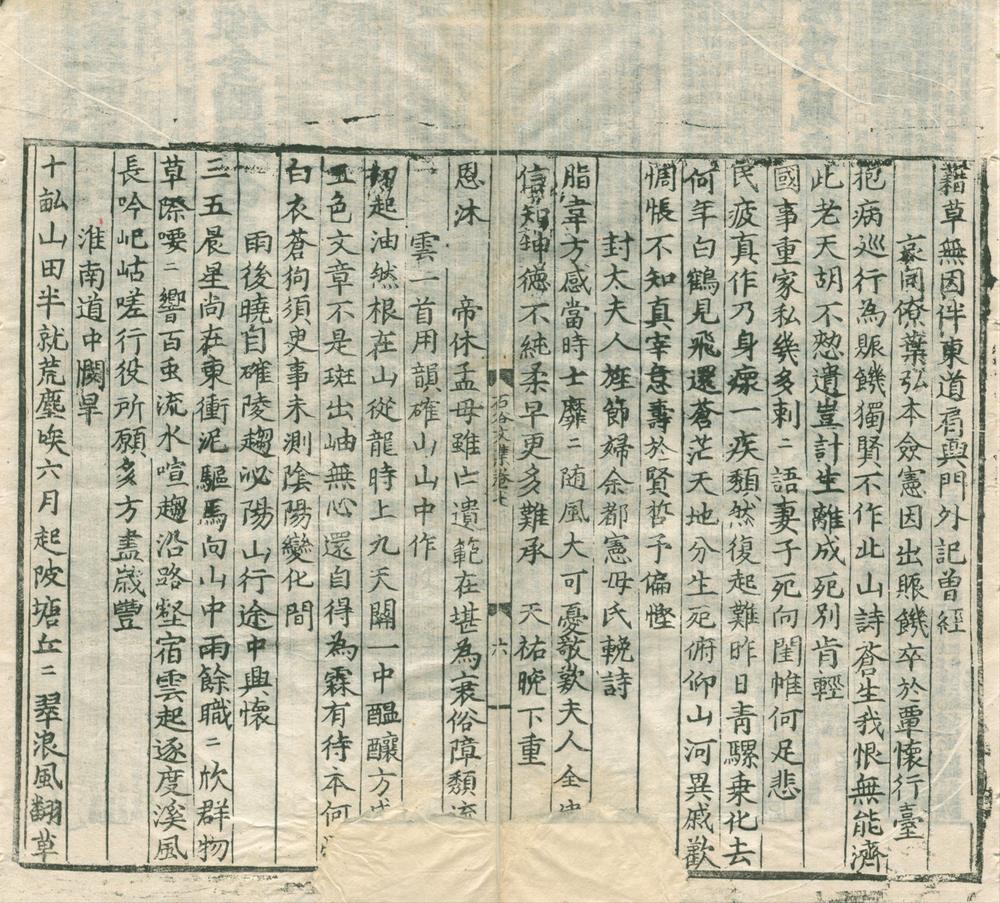 藉草無因伴東道肩輿門外記曾經
哀同僚葉弘本僉憲因出賑饑卒於覃懷行臺
抱病巡行為賑饑獨賢不作北山詩蒼生我恨無能濟
此老天胡不憗遺豈計生離成死別肯輕
國事重家私幾多剌二語妻子死向閨帷何足悲
民疲真作乃身瘝一疾頽然復起難昨日青騾乗化去
何年白鶴見飛還蒼茫天地分生死俯仰山河異戚歡
惆悵不知真宰意壽於賢哲予偏慳
封太夫人旌節婦余都憲母氏輓詩
脂韋方感當時士靡二随風大可憂敬歎夫人全
信知坤德不純柔早更多難承 天祐晚下重
恩沐 帝休孟母雖亡遺範在堪為衰俗障頽
石谷文集卷七
六
雲一首用韻確山山中作
起油然根在山從龍時上九天關一中醞釀方
五色文章不是斑出岫無心還自得為霖有待本何
白衣蒼狗須臾事未測陰陽變化間
雨後曉自確陵趨泌陽山行途中興懷
三五晨星尚在東衝泥驅馬向山中雨餘職二欣群物
草際喓二響百虫流水喧趨沿路壑宿雲起逐度溪風
長吟屺岵嗟行役所願多方盡歲豐
淮南道中閔旱
十畆山田半就荒塵埃六月起陂塘丘二翠浪風翻草